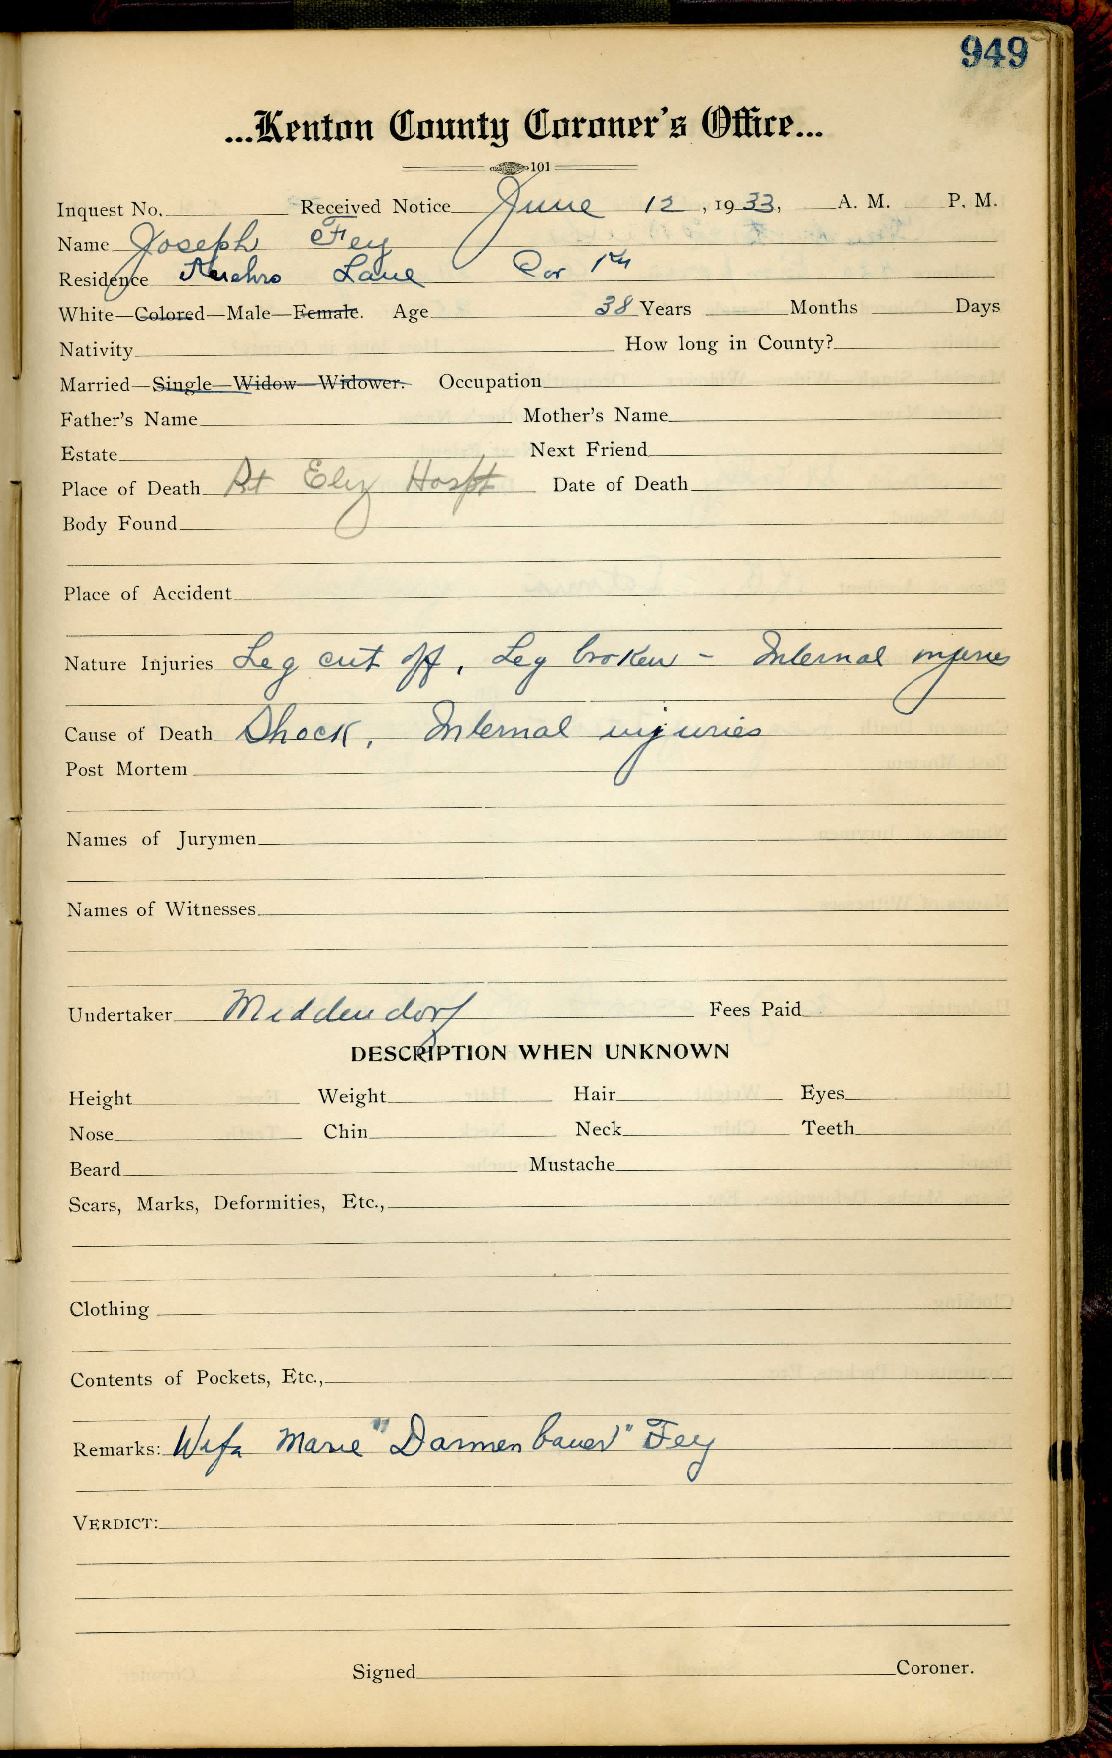 949
...Kenton County Coroner's Office...
101
Inquest No. Received Notice June 12, 1933, A. M. P. M.
Name Joseph Fey
Residence Lane
White—Colored—Male—Female. Age 38 Years Months Days
Nativity How long in County?
Married—Single—Widow—Widower. Occupation
Father's Name Mother's Name
Estate Next Friend
Place of Death St Eliz Hospt Date of Death
Body Found
Place of Accident
Nature Injuries Leg cut off, Leg broken - Internal injuries
Cause of Death Shock, Internal injuries
Post Mortem
Names of Jurymen
Names of Witnesses
Undertaker Middendorf Fees Paid
DESCRIPTION WHEN UNKNOWN
Height Weight Hair Eyes
Nose Chin Neck Teeth
Beard Mustache
Scars, Marks, Deformities, Etc.,
Clothing
Contents of Pockets, Etc.,
Remarks: Wife Marie "Darmenbauer" Fey
VERDICT:
Signed Coroner.